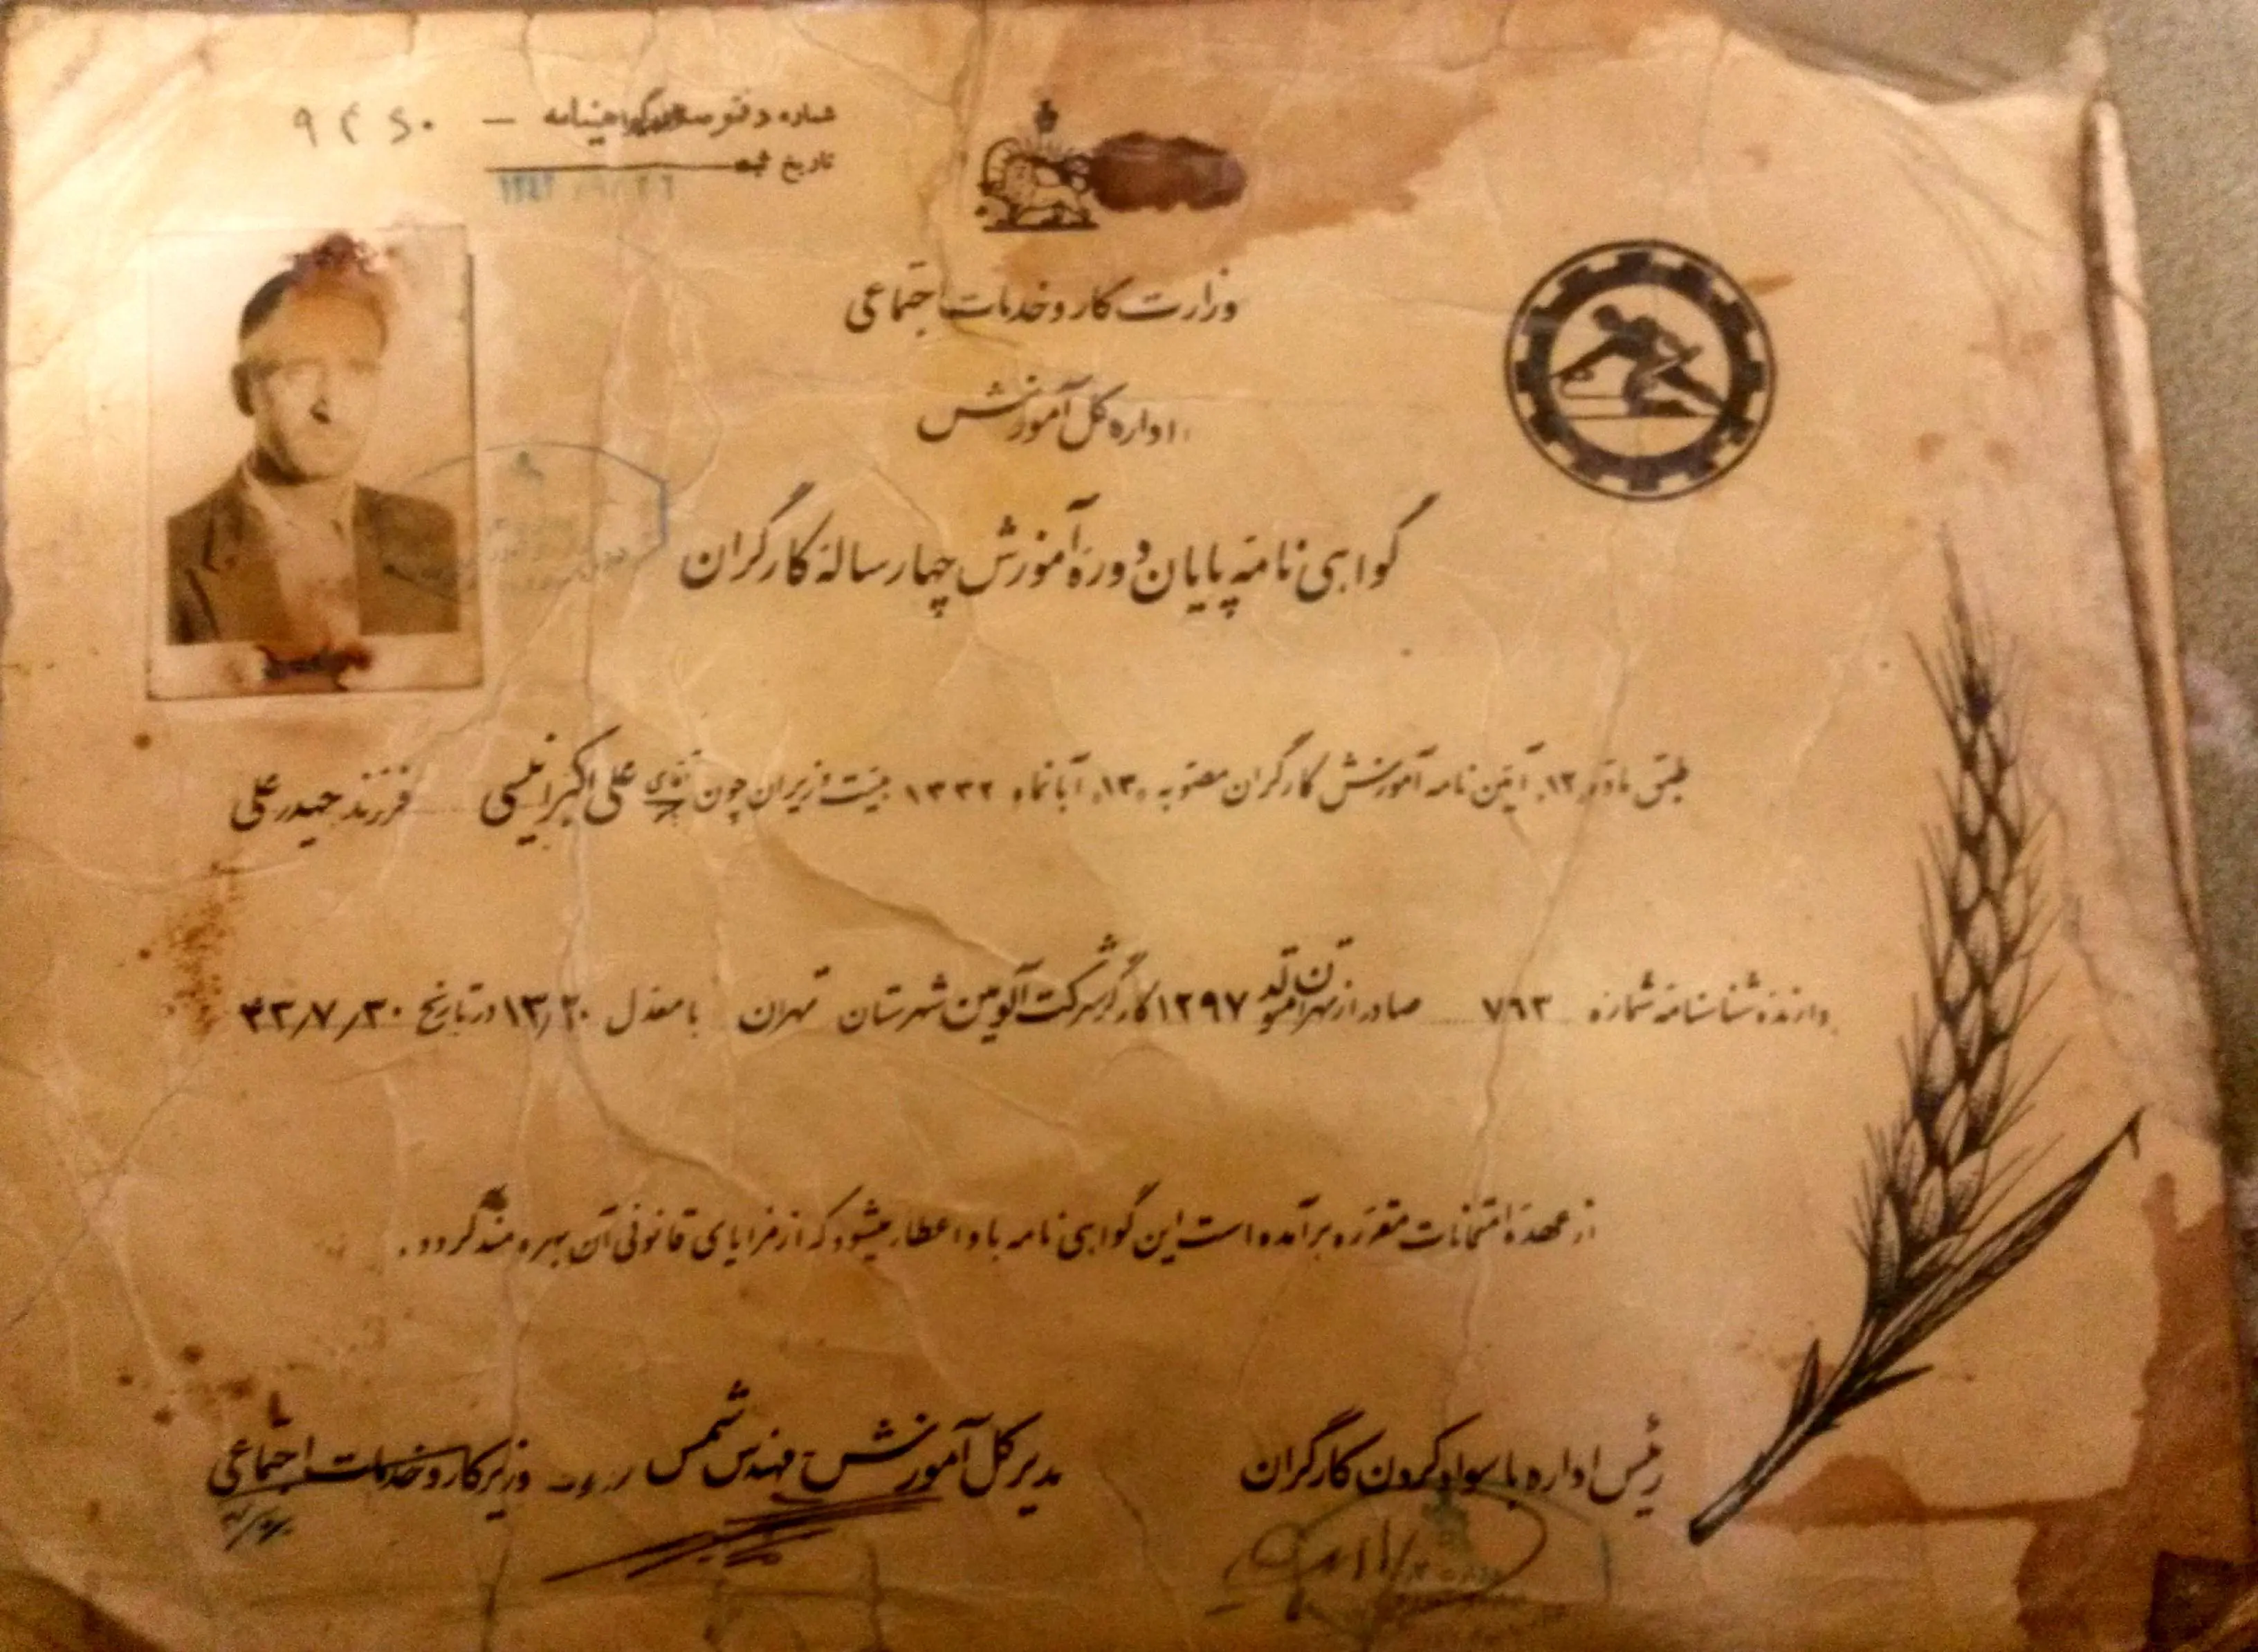 شماره دفتر گواهینامه — ۹۴۶۰
تاریخ ثبت
وزارت کار و خدمات اجتماعی
اداره کل آموزش
گواهی نامهٔ پایان دورهٔ آموزش چهار سالهٔ کارگران
طبق مادهٔ ۱۲ آئین نامه آموزش کارگران مصوبه ۱۳ آبانماه ۱۳۳۲ هیئت وزیران چون آقای علی اکبر فرزند حیدر علی
دارندهٔ شناسنامهٔ شماره ۷۶۳ صادر از تهران متولد ۱۲۹۷ کارگر شرکت آلومین شهرستان تهران با معدل ۱۳/۲۰ در تاریخ ۴۳/۷/۳۰
از عهدهٔ امتحانات مقرره برآمده است این گواهی نامه باو اعطاء میشود که از مزایای قانونی آن بهره مند گردد.
رئیس اداره با سواد کردن کارگران
مدیر کل آموزش مهندس شمس
وزیر کار و خدمات اجتماعی